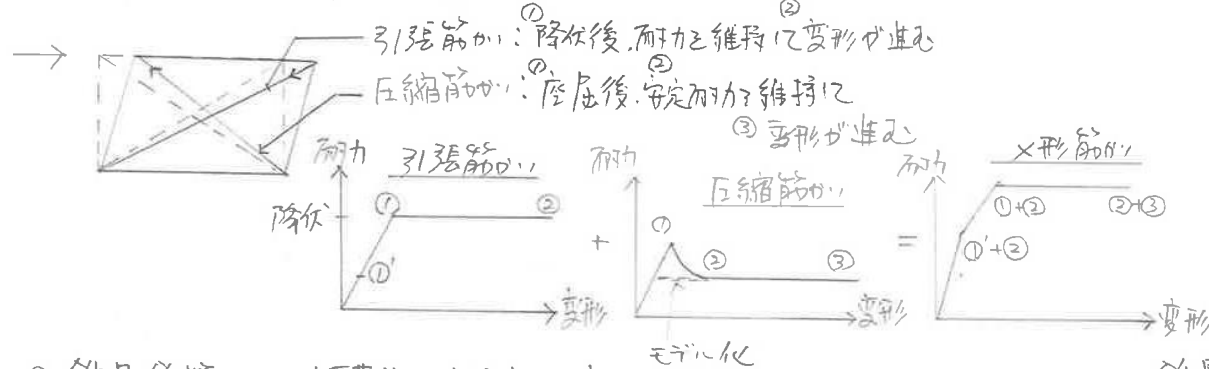 引張筋かい：①降伏後、耐力を維持して②変形が進む
圧縮筋かい：①座屈後、②安定耐力を維持して
③変形が進む
耐力 引張筋かい
降伏 ① ②
①'
変形
+
耐力
圧縮筋かい
① ② ③
変形
モデル化
=
耐力 X形筋かい
①+② ②+③
①'+②
変形